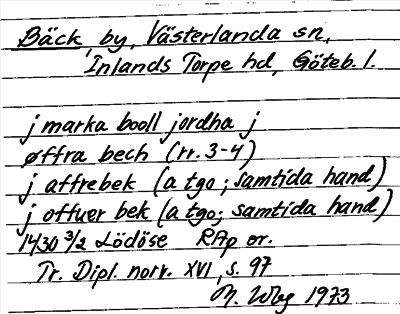 Bäck, by, Västerlanda sn,
Inlands Torpe hd, Göteb. l.
j marka booll jordha j
øffra bech (rr. 3-4)
j affrebek (a tgo; samtida hand)
j offuer bek (a tgo; samtida hand)
1430 3/2 Lödöse RAp or.
Tr. Dipl. norv. XVI, s. 97
M. Wbg 1973